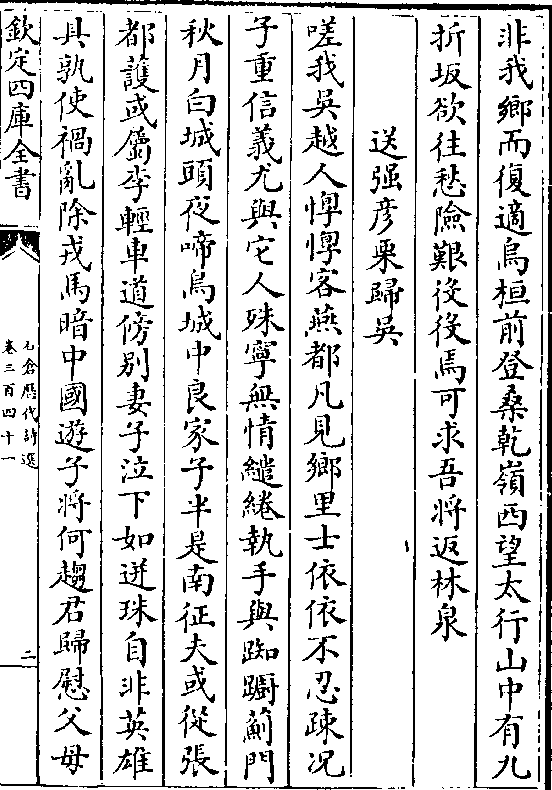 非我鄉而復適烏桓前登桑乾嶺西望太行山中有九
折坂欲往愁險艱役役焉可求吾將返林泉
送强彦栗歸吳
嗟我吳越人惸惸客燕都凡見鄉里士依依不忍疎况
子重信義尤與它人殊寧無情繾綣執手與踟蹰薊門
秋月白城頭夜啼烏城中良家子半是南征夫或從張
都護或屬李輕車道傍别妻子泣下如迸珠自非英雄
具孰使禍亂除戎馬暗中國遊子將何趨君歸慰父母
欽定四庫全書
石倉歷代詩選
卷三百四十一
二